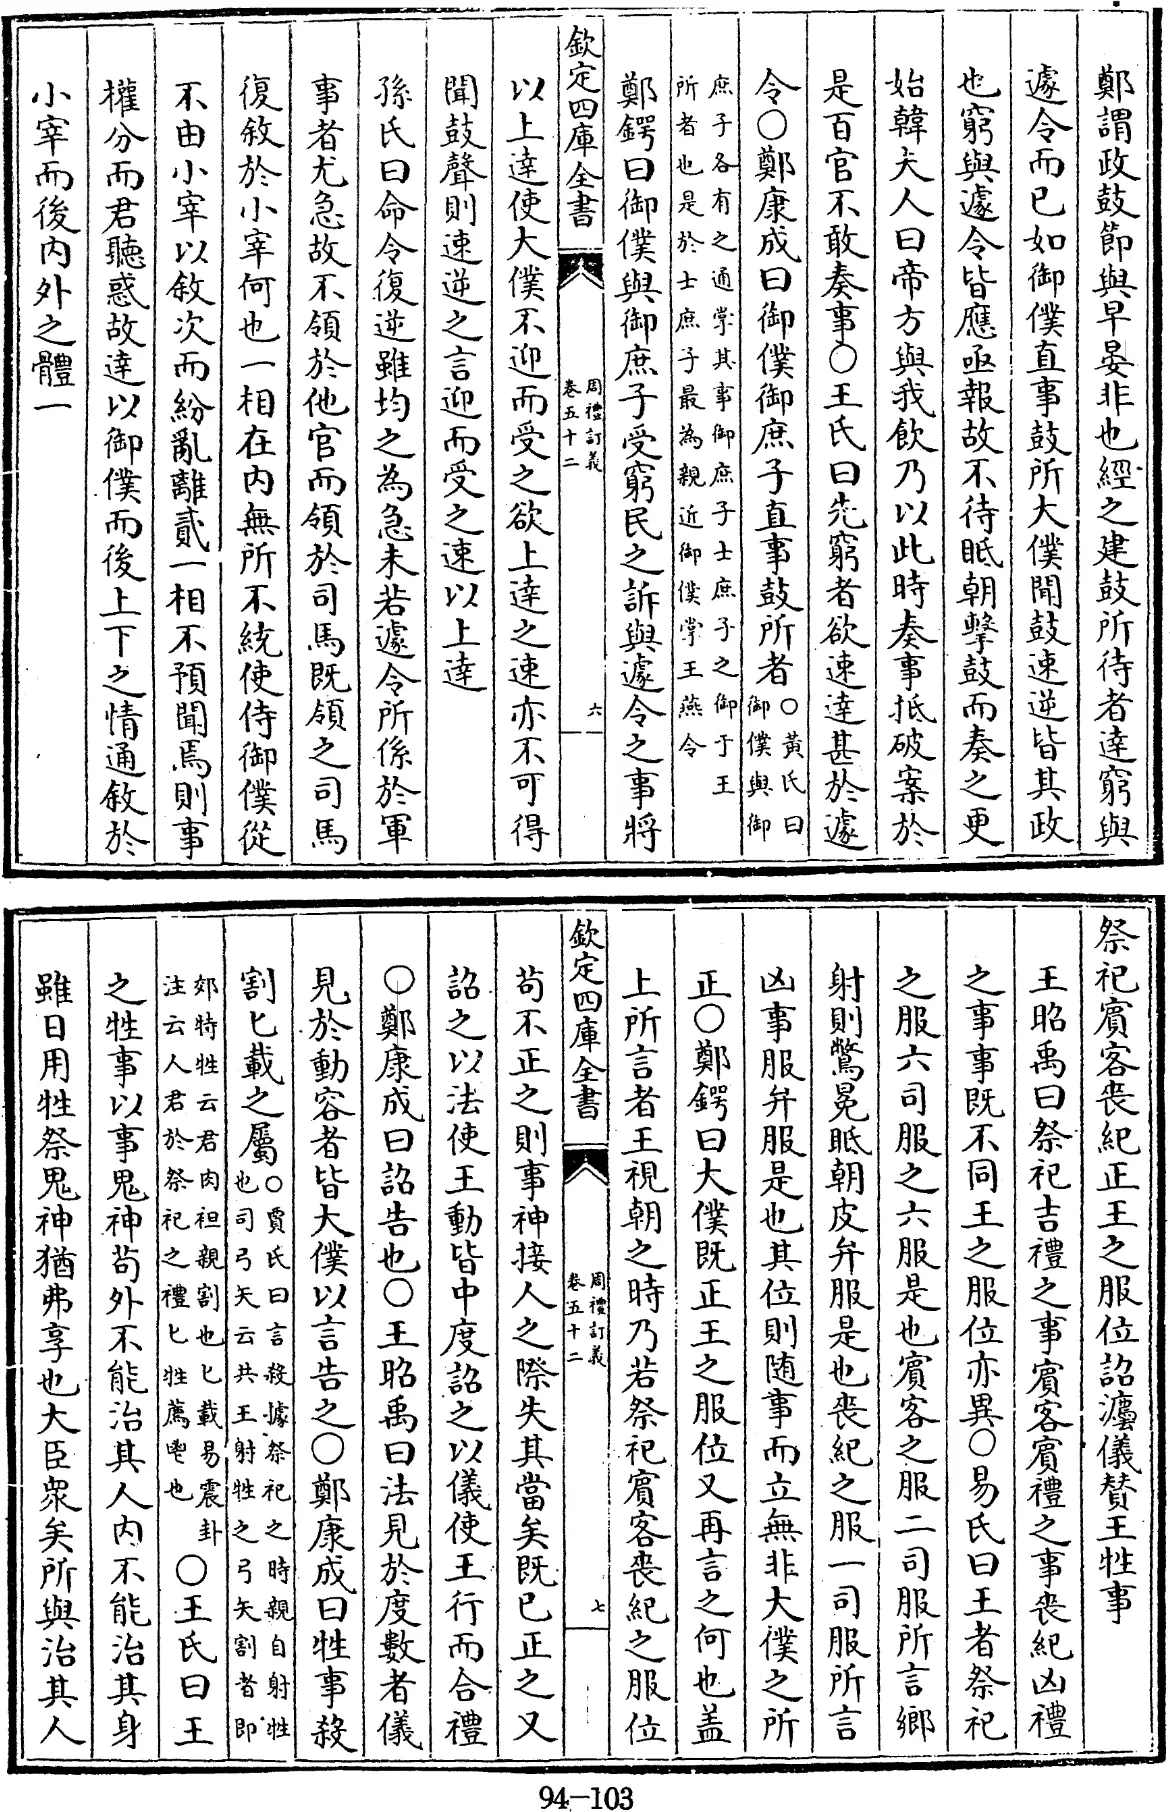 鄭謂政鼓節與早晏非也經之建鼓所待者達窮與
遽令而已如御僕直事鼓所大僕聞鼓速逆皆其政
也窮與遽令皆應亟報故不待眡朝擊鼓而奏之更
始韓夫人曰帝方與我飲乃以此時奏事抵破案於
是百官不敢奏事○王氏曰先窮者欲速達甚於遽
令○鄭康成曰御僕御庶子直事鼓所者○黃氏曰
御僕與御
庶子各有之通掌其事御庶子士庶子之御于王
所者也是於士庶子最為親近御僕掌王燕令
鄭鍔曰御僕與御庶子受窮民之訴與遽令之事將
欽定四庫全書
周禮訂義
卷五十二
六
以上達使大僕不迎而受之欲上達之速亦不可得
聞鼓聲則速逆之言迎而受之速以上達
孫氏曰命令復逆雖均之為急未若遽令所係於軍
事者尤急故不領於他官而領於司馬既領之司馬
復敘於小宰何也一相在內無所不統使侍御僕從
不由小宰以敘次而紛亂離貳一相不預聞焉則事
權分而君聽惑故達以御僕而後上下之情通敘於
小宰而後內外之體一
祭祀賓客喪紀正王之服位詔灋儀贊王牲事
王昭禹曰祭祀吉禮之事賓客賓禮之事喪紀凶禮
之事事既不同王之服位亦異○易氏曰王者祭祀
之服六司服之六服是也賓客之服二司服所言鄉
射則鷩冕眡朝皮弁服是也喪紀之服一司服所言
凶事服弁服是也其位則隨事而立無非大僕之所
正○鄭鍔曰大僕既正王之服位又再言之何也蓋
上所言者王視朝之時乃若祭祀賓客喪紀之服位
欽定四庫全書
周禮訂義
卷五十二
七
苟不正之則事神接人之際失其當矣既已正之又
詔之以法使王動皆中度詔之以儀使王行而合禮
○鄭康成曰詔告也○王昭禹曰法見於度數者儀
見於動容者皆大僕以言告之○鄭康成曰牲事殺
割匕載之屬○賈氏曰言殺據祭祀之時親自射牲
也司弓矢云共王射牲之弓矢割者即
郊特牲云君肉袒親割也匕載易震卦
注云人君於祭祀之禮匕牲薦鬯也○王氏曰王
之牲事以事鬼神苟外不能治其人內不能治其身
雖日用牲祭鬼神猶弗享也大臣衆矣所與治其人
94-103